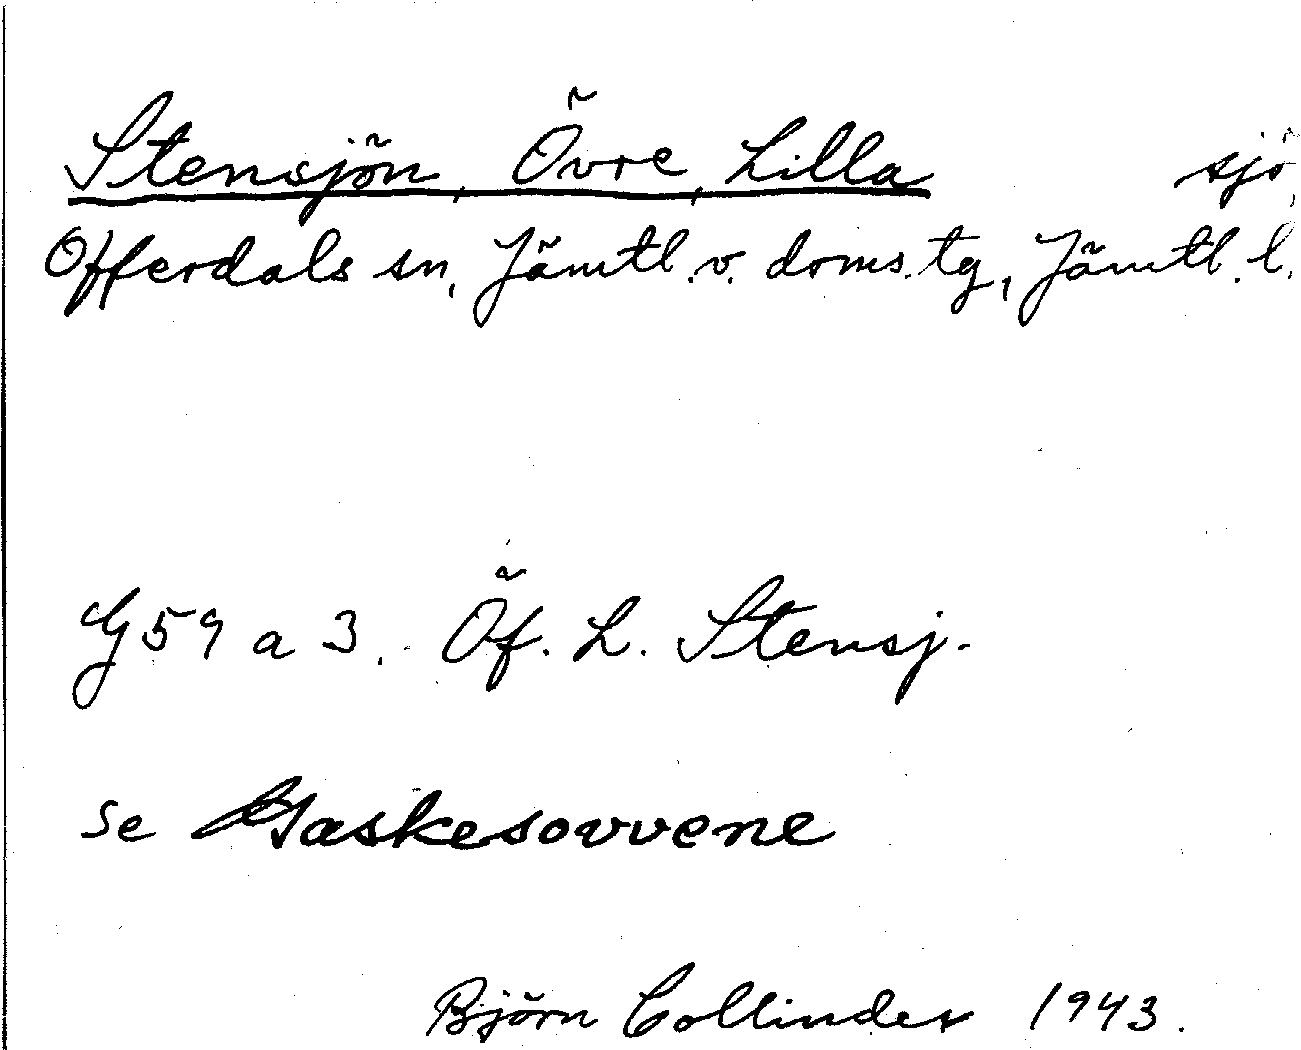 Stensjön, Övre, Lilla sjö,
Offerdals sn, Jämtl. v. doms. tg, Jämtl. l.
G 59 a 3. Öf. L. Stensj.
se Gaskesovvene
Björn Collinder 1943.